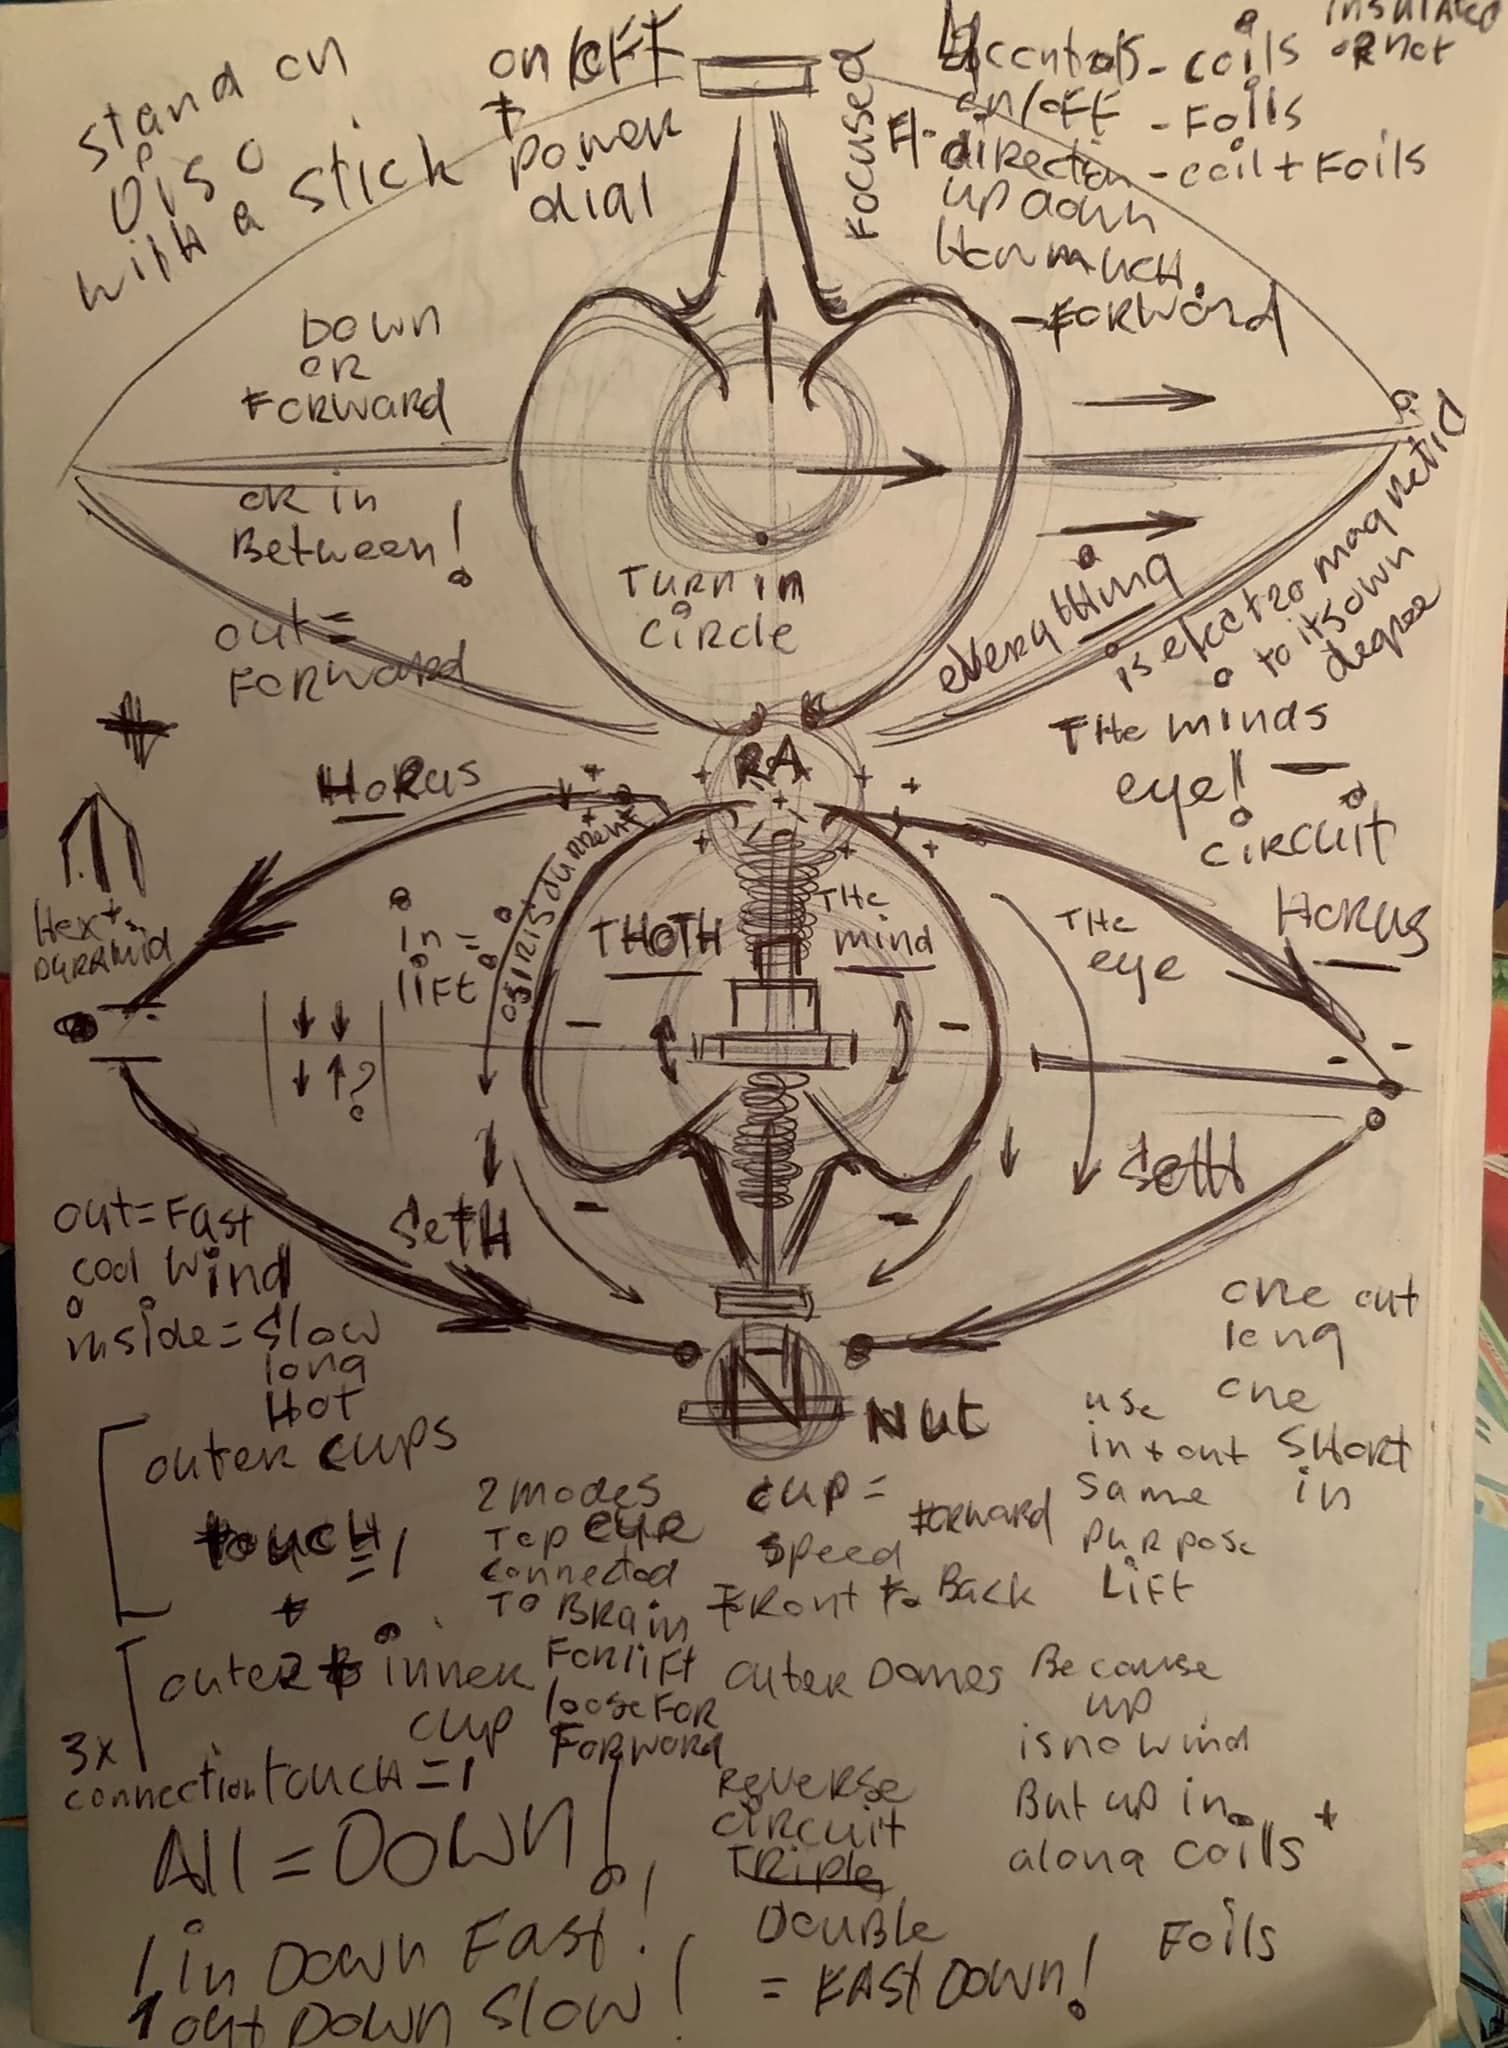 stand on
Disc
with a stick
on/off
+
power
dial
Focused
controls - coils
insulated
or not
on/off - Foils
direction - coil + Foils
up down
How much.
- Forward
Down
or
Forward
or in
Between!
out =
Forward
Turn in
circle
everything
is electro magnetic
to its own
degree
The minds
eye!! -
circuit
RA
Horus
Horus
Hex +
pyramid
in =
lift
Osiris current
THOTH
The
mind
The
eye
?
Seth
Seth
out = Fast
cool wind
inside = slow
long
Hot
N
Nut
one out
long
one
short
in
use
in + out
same
purpose
Lift
outer cups
touch = 1
+
outer + inner
cup
3x
connection touch = 1
2 modes
Top eye
connected
To Brain
For lift
loose For
Forward
cup =
speed
Forward
Front to Back
outer Domes
Because
up
is no wind
But up in
along coils +
Foils
Reverse
circuit
Triple
Double
= Fast Down!
All = Down!
1 in Down Fast!
1 out Down Slow!